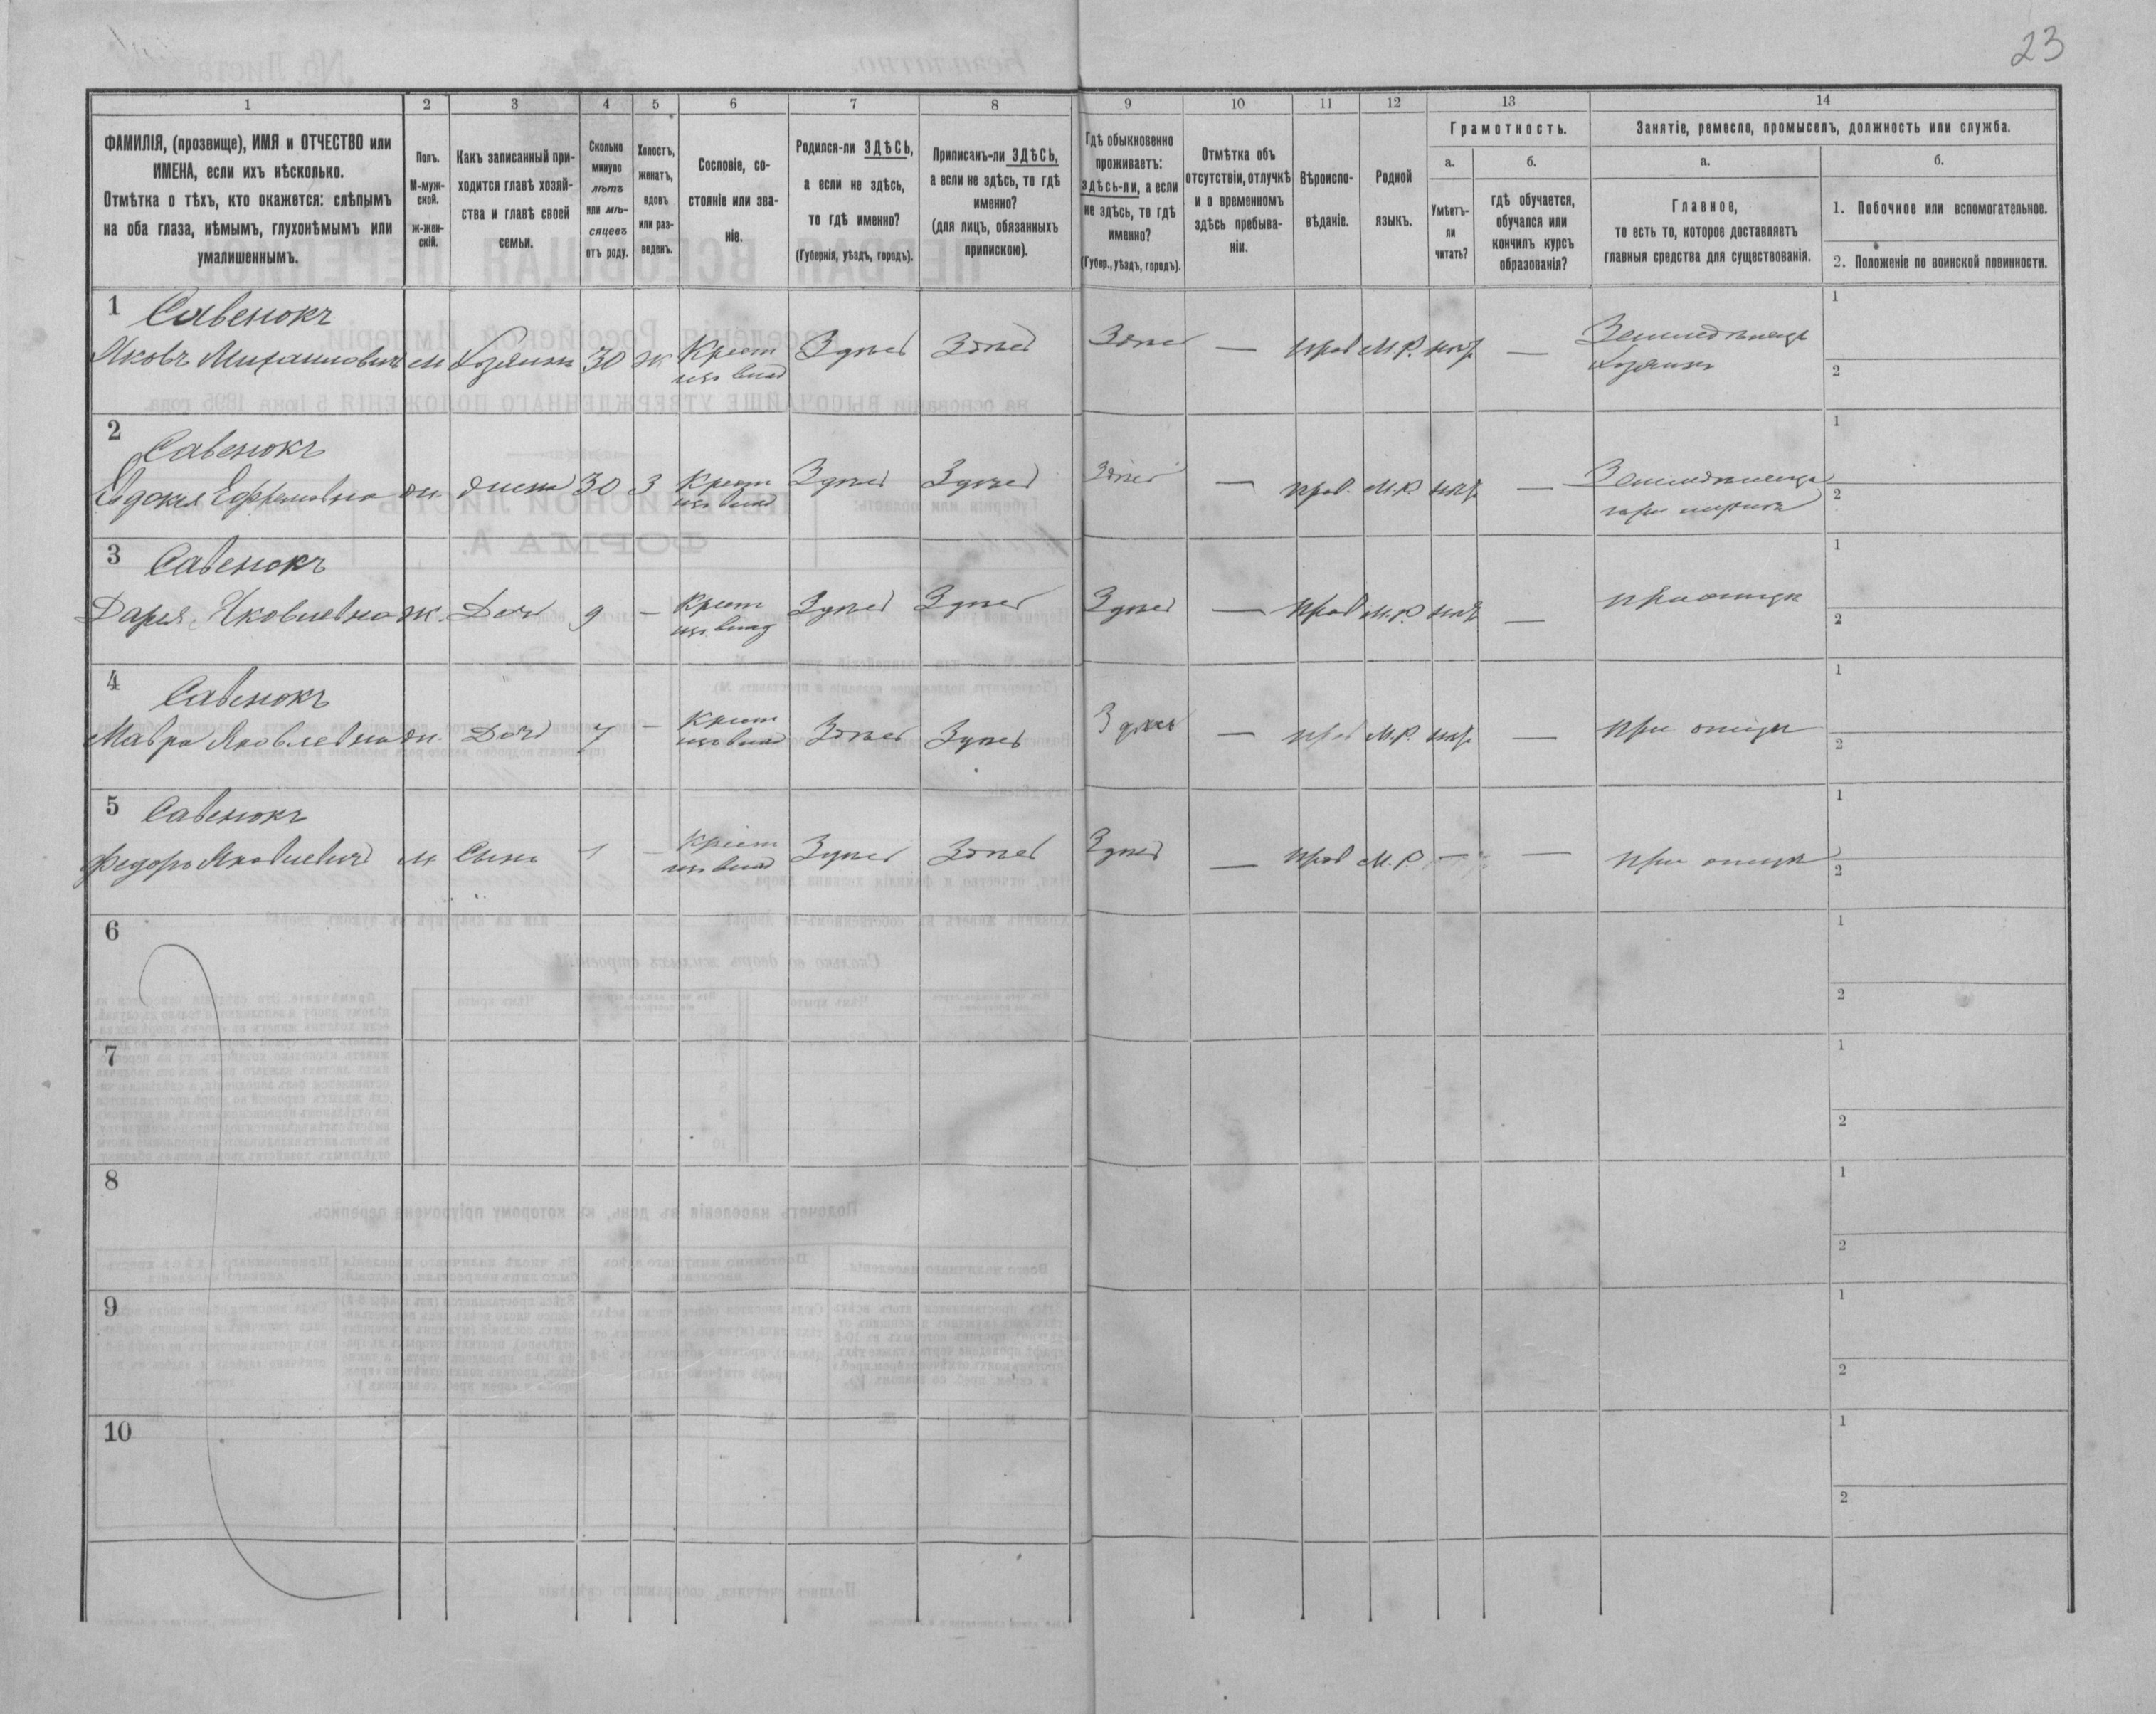 23
1
2
3
4
5
6
7
8
9
10
11
12
13
14
ФАМИЛІЯ, (прозвище), ИМЯ и ОТЧЕСТВО или
ИМЕНА, если ихъ нѣсколько.
Отмѣтка о тѣхъ, кто окажется: слѣпымъ
на оба глаза, нѣмымъ, глухонѣмымъ или
умалишеннымъ.
Полъ.
М-муж-
ской.
ж-жен-
скій.
Какъ записанный при-
ходится главѣ хозяй-
ства и главѣ своей
семьи.
Сколько
минуло
лѣтъ
или мѣ-
сяцевъ
отъ роду.
Холостъ,
женатъ,
вдовъ
или раз-
веденъ.
Сословіе, со-
стояніе или зва-
ніе.
Родился-ли ЗДѢСЬ,
а если не здѣсь,
то гдѣ именно?
(Губернія, уѣздъ, городъ).
Приписанъ-ли ЗДѢСЬ,
а если не здѣсь, то гдѣ
именно?
(для лицъ, обязанныхъ
припискою).
Гдѣ обыкновенно
проживаетъ:
ЗДѢСЬ-ли, а если
не здѣсь, то гдѣ
именно?
(Губер., уѣздъ, городъ).
Отмѣтка объ
отсутствіи, отлучкѣ
и о временномъ
здѣсь пребыва-
ніи.
Вѣроиспо-
вѣданіе.
Родной
языкъ.
Грамотность.
а.
Умѣетъ-
ли
читать?
б.
гдѣ обучается,
обучался или
кончилъ курсъ
образованія?
Занятіе, ремесло, промыселъ, должность или служба.
а.
Главное,
то есть то, которое доставляетъ
главныя средства для существованія.
б.
1. Побочное или вспомогательное.
2. Положеніе по воинской повинности.
1 Савенокъ
Яковъ Михаиловичъ м Хозяинъ 30 ж Крест Здѣсь Здѣсь Здѣсь — прав М.Р. нѣт — Земледѣлецъ
изъ влад
хозяинъ
1
2
2 Савенокъ
Евдокия Ефремовна ж. жена 30 З Крест Здѣсь Здѣсь Здѣсь — прав. М.Р. нѣт —
изъ влад
при мужѣ
1
2
3 Савенокъ
Дарея Яковлевна ж. Дочь 9 — Крест Здѣсь Здѣсь Здѣсь — прав М.Р. нѣт — при отцѣ
изъ влад
1
2
4 Савенокъ
Мавра Яковлевна ж. Дочь 7 — Крест Здѣсь Здѣсь Здѣсь — прав М.Р. нѣт — при отцѣ
изъ влад
1
2
5 Савенокъ
Федоръ Яковлевичъ м Сынъ 1 — Крест Здѣсь Здѣсь Здѣсь — прав М.Р. — — при отцѣ
изъ влад
1
2
6
1
2
7
1
2
8
1
2
9
1
2
10
1
2